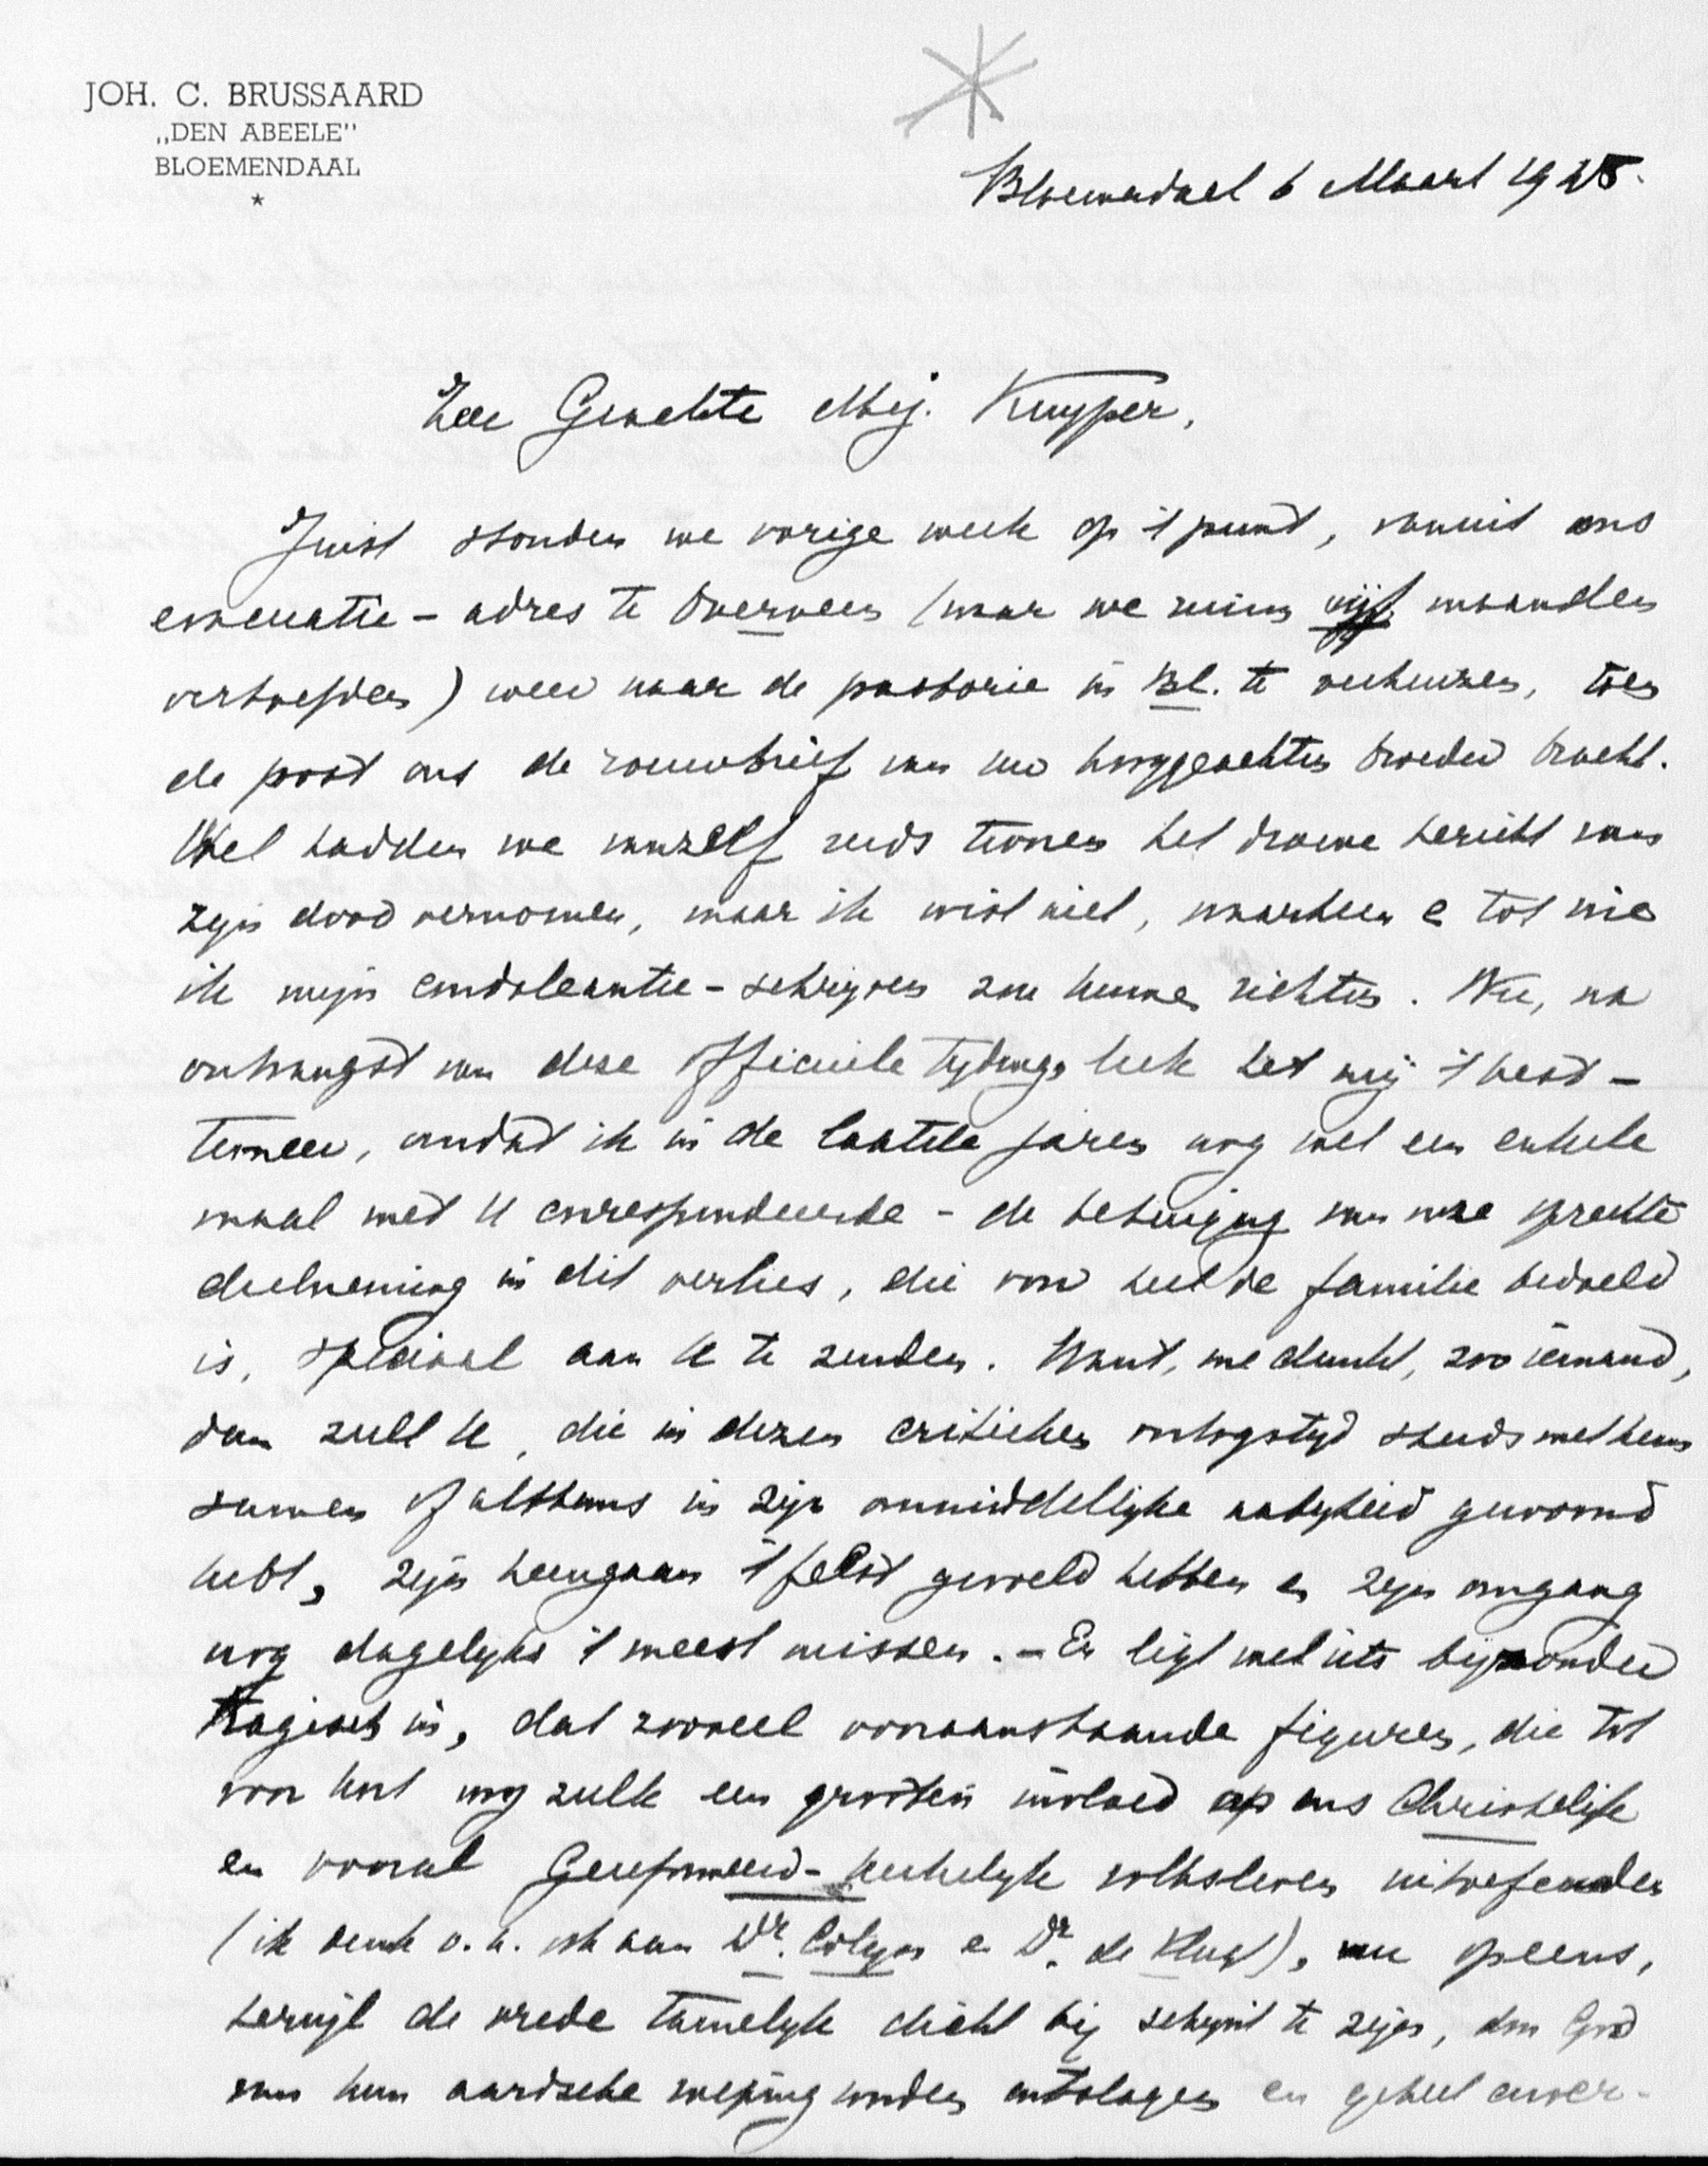 JOH. C. BRUSSAARD
„DEN ABEELE"
BLOEMENDAAL
Bloemendaal 6 Maart 1945.
Zeer Geachte Mej. Kuyper,
Juist stonden we vorige week op 't punt, vanuit ons
evacuatie-adres te Overveen (waar we ruim vijf maanden
vertoefden) weer naar de pastorie in Bl. te verhuizen, toen
de post ons de rouwbrief van uw hooggeachten broeder bracht.
Wel hadden we vanzelf reeds tevoren het droeve bericht van
zijn dood vernomen, maar ik wist niet, waarheen en tot wie
ik mijn condoleantie-schrijven zou kunnen richten. Nu, na
ontvangst van deze officieele tijding, leek het mij 't best –
temeer, omdat ik in de laatste jaren nog wel een enkele
maal met U correspondeerde – de betuiging van onze oprechte
deelneming in dit verlies, die voor heel de familie bedoeld
is, speciaal aan U te zenden. Want, me dunkt, zoo iemand,
dan zult U, die in dezen critieken oorlogstijd steeds met hem
samen of althans in zijn onmiddellijke nabijheid gewoond
hebt, zijn heengaan 't felst gevoeld hebben en zijn omgang
nog dagelijks 't meest missen. – Er ligt wel iets bijzonder
tragisch in, dat zooveel vooraanstaande figuren, die tot
voor kort nog zulk een grooten invloed op ons Christelijk
en vooral Gereformeerd-kerkelijk volksleven uitoefenden
(ik denk o.a. ook aan Dr. Colijn en Dr. de Vlugt), nu opeens,
terwijl de vrede tamelijk dicht bij schijnt te zijn, door God
van hun aardsche roeping worden ontslagen en geheel onver-